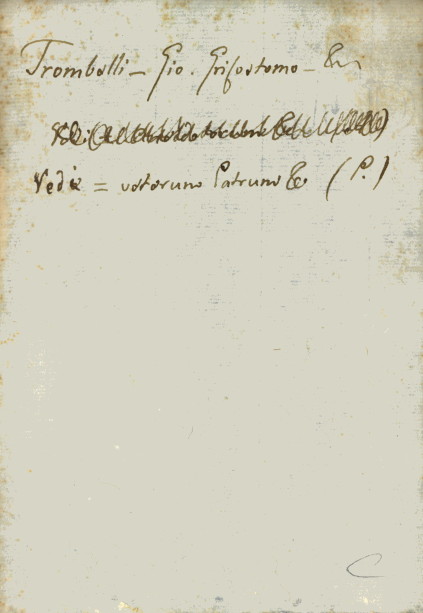 Trombelli - Gio. Grisostomo - &
Vedi = veterum Patrum & (P.)
C